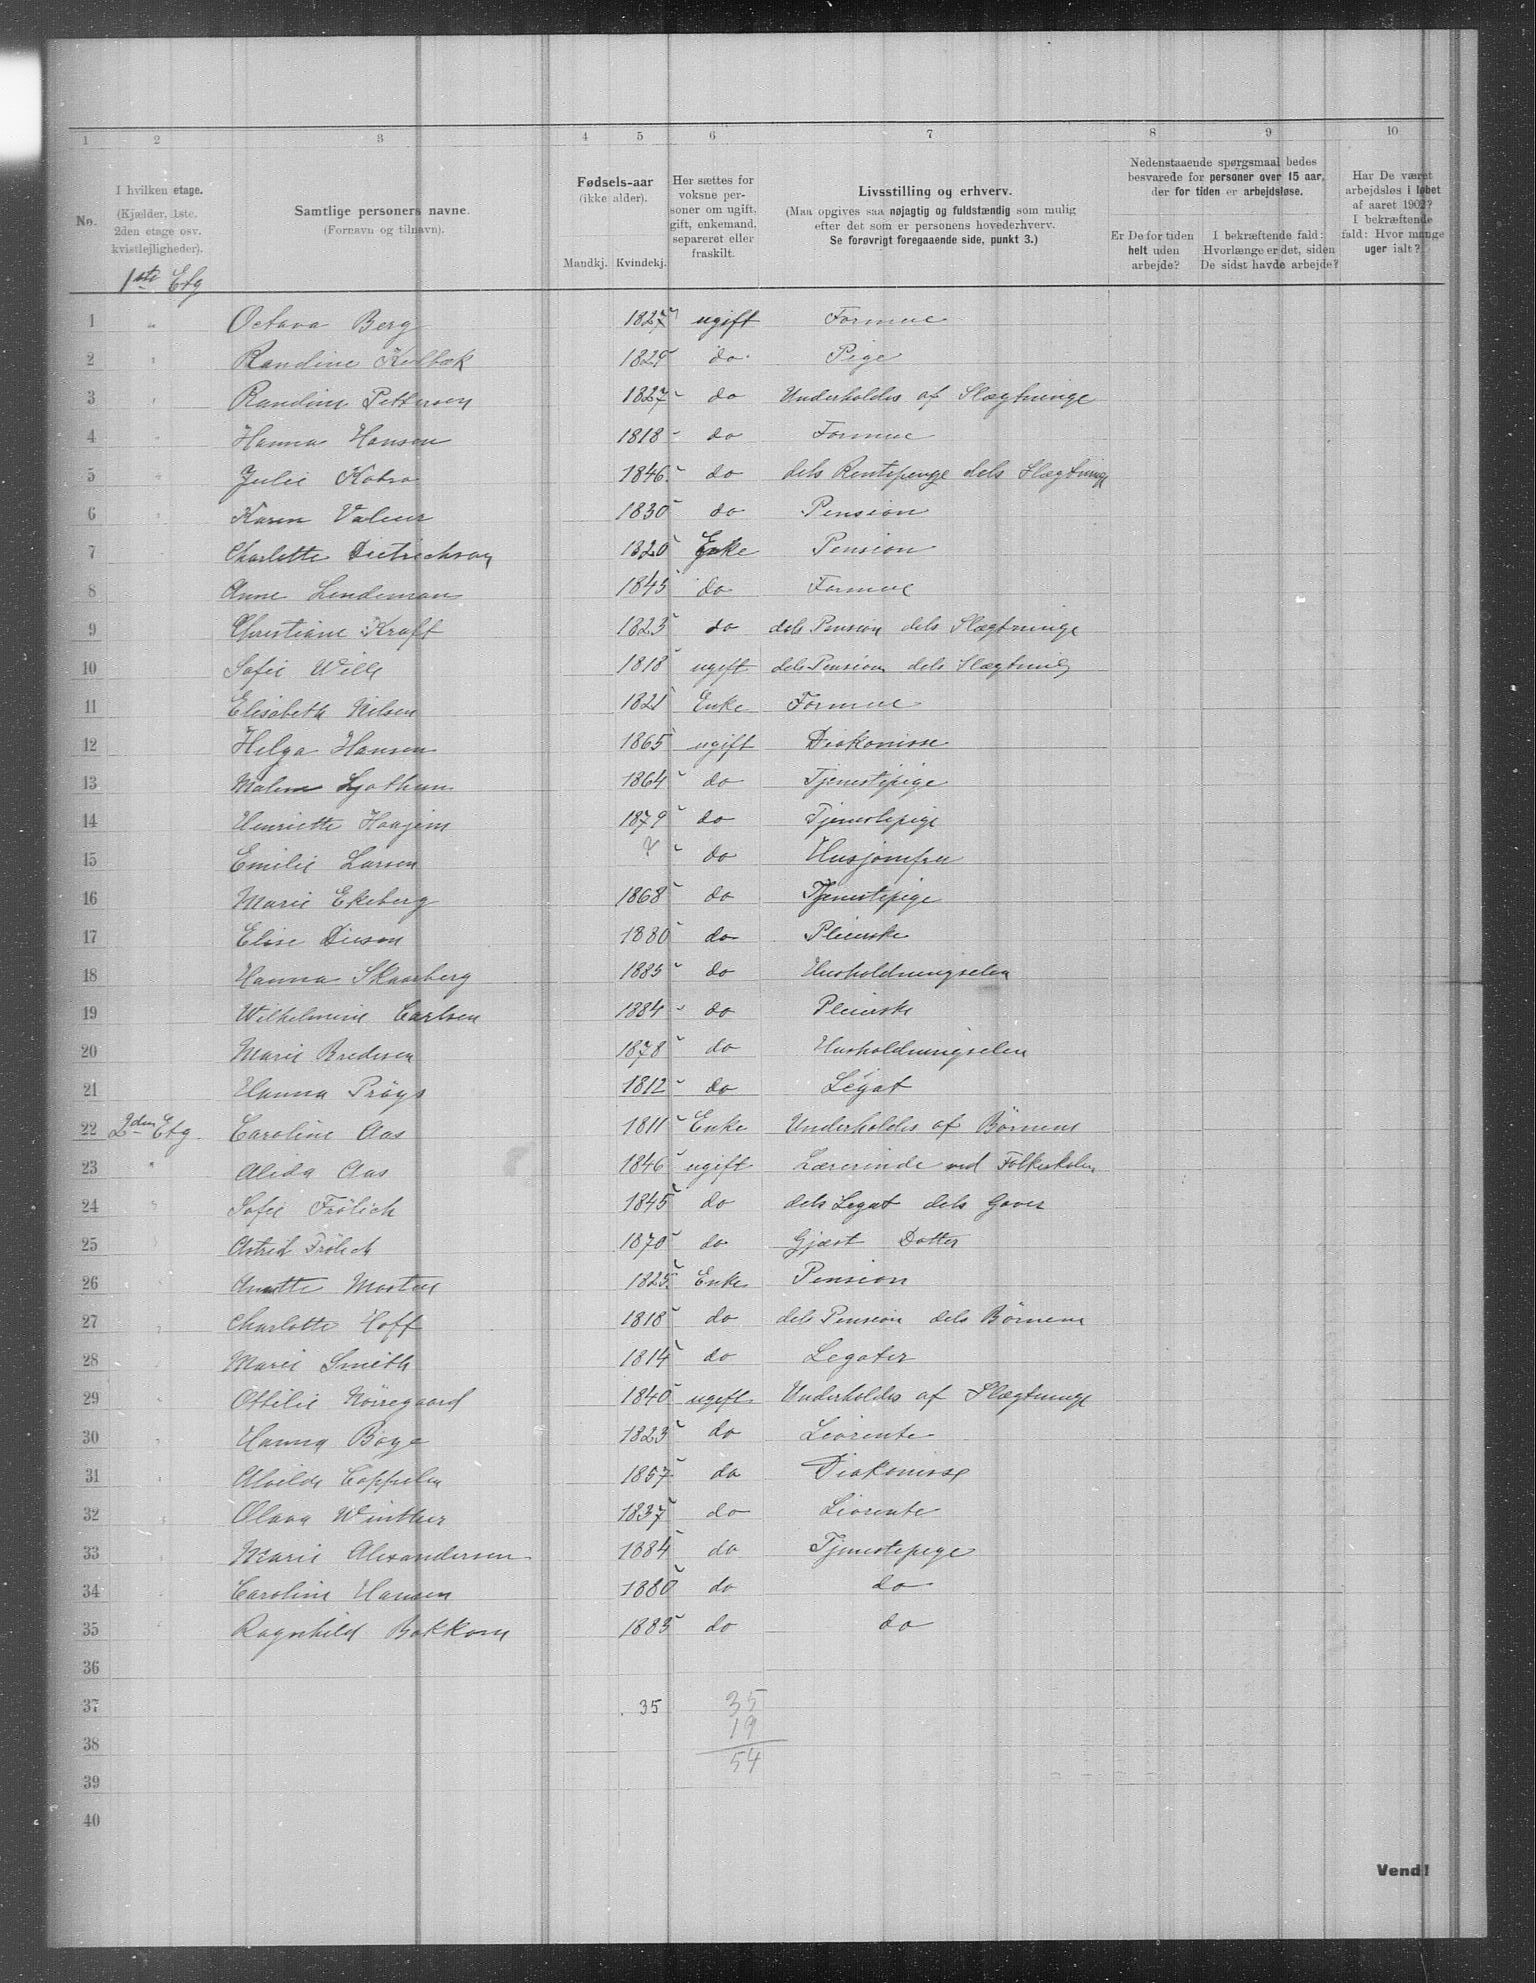 1 2 3 4 5 6 7 8 9 10
No.
I hvilken etage.
(Kjælder, 1ste.
2den etage osv.
kvistlejligheder).
Samtlige personers navne.
(Fornavn og tilnavn).
Fødsels-aar
(ikke alder).
Mandkj. Kvindekj.
Her sættes for
voksne per-
soner om ugift,
gift, enkemand,
separeret eller
fraskilt.
Livsstilling og erhverv.
(Maa opgives saa nøjagtig og fuldstændig som mulig
efter det som er personens hovederhverv.
Se forøvrigt foregaaende side, punkt 3.)
Nedenstaaende spørgsmaal bedes
besvarede for personer over 15 aar,
der for tiden er arbejdsløse.
Er De for tiden
helt uden
arbejde?
I bekræftende fald:
Hvorlænge er det, siden
De sidst havde arbejde?
Har De været
arbejdsløs i løbet
af aaret 1902?
I bekræftende
fald: Hvor mange
uger ialt?
1ste Etg
1 " Octava Berg 1827 ugift Formue
2 " Randine Kulbæk 1829 do Pige
3 " Randine Pettersen 1827 do Underholdes af Slægtninge
4 " Hanna Hansen 1818 do Formue
5 " Julie 1846 do dels Rentepenge dels Slægtninge
6 " Karen Valeur 1830 do Pension
7 Charlotte Dietrichson 1820 Enke Pension
8 Anne Lindeman 1845 do Formue
9 Christiane Kraft 1823 do dels Pension dels Slægtninge
10 Sofie Wille 1818 ugift dels Pension dels Slægtning
11 Elisabeth Nilsen 1821 Enke Formue
12 Helga Hansen 1865 ugift Diakonisse
13 Malene 1864 do Tjenestepige
14 Henriette 1879 do Tjenestepige
15 Emilie Larsen ? do Husjomfru
16 Marie Ekeberg 1868 do Tjenestepige
17 Elise Diesen 1880 do Pleierske
18 Hanna Skaarberg 1885 do Husholdningselev
19 Wilhelmine Carlsen 1884 do Pleierske
20 Marie Bredesen 1878 do Husholdningselev
21 Hanna Prøys 1812 do Legat
22 2den Etg. Caroline Aas 1811 Enke Underholdes af Børnene
23 " Alida Aas 1846 ugift Lærerinde ved Folkeskolen
24 " Sofie Frölich 1845 do dels Legat dels Gaver
25 " Astrid Frölich 1870 do Gjæst Datter
26 " Anette Morten 1825 Enke Pension
27 " Charlotte Hoff 1818 do dels Pension dels Börnene
28 " Marie Smith 1814 do Legater
29 " Ottilie Nörregaard 1840 ugift Underholdes af Slægtninge
30 " Hanna Boye 1823 do Livrente
31 " Alvilde Cappelen 1857 do Diakonisse
32 " Olava Winther 1837 do Livrente
33 " Marie Alexandersen 1884 do Tjenestepige
34 " Caroline Hansen 1880 do do
35 " Ragnhild Bakkom 1883 do do
36
37 35 35
38 19
39 54
40
Vend!